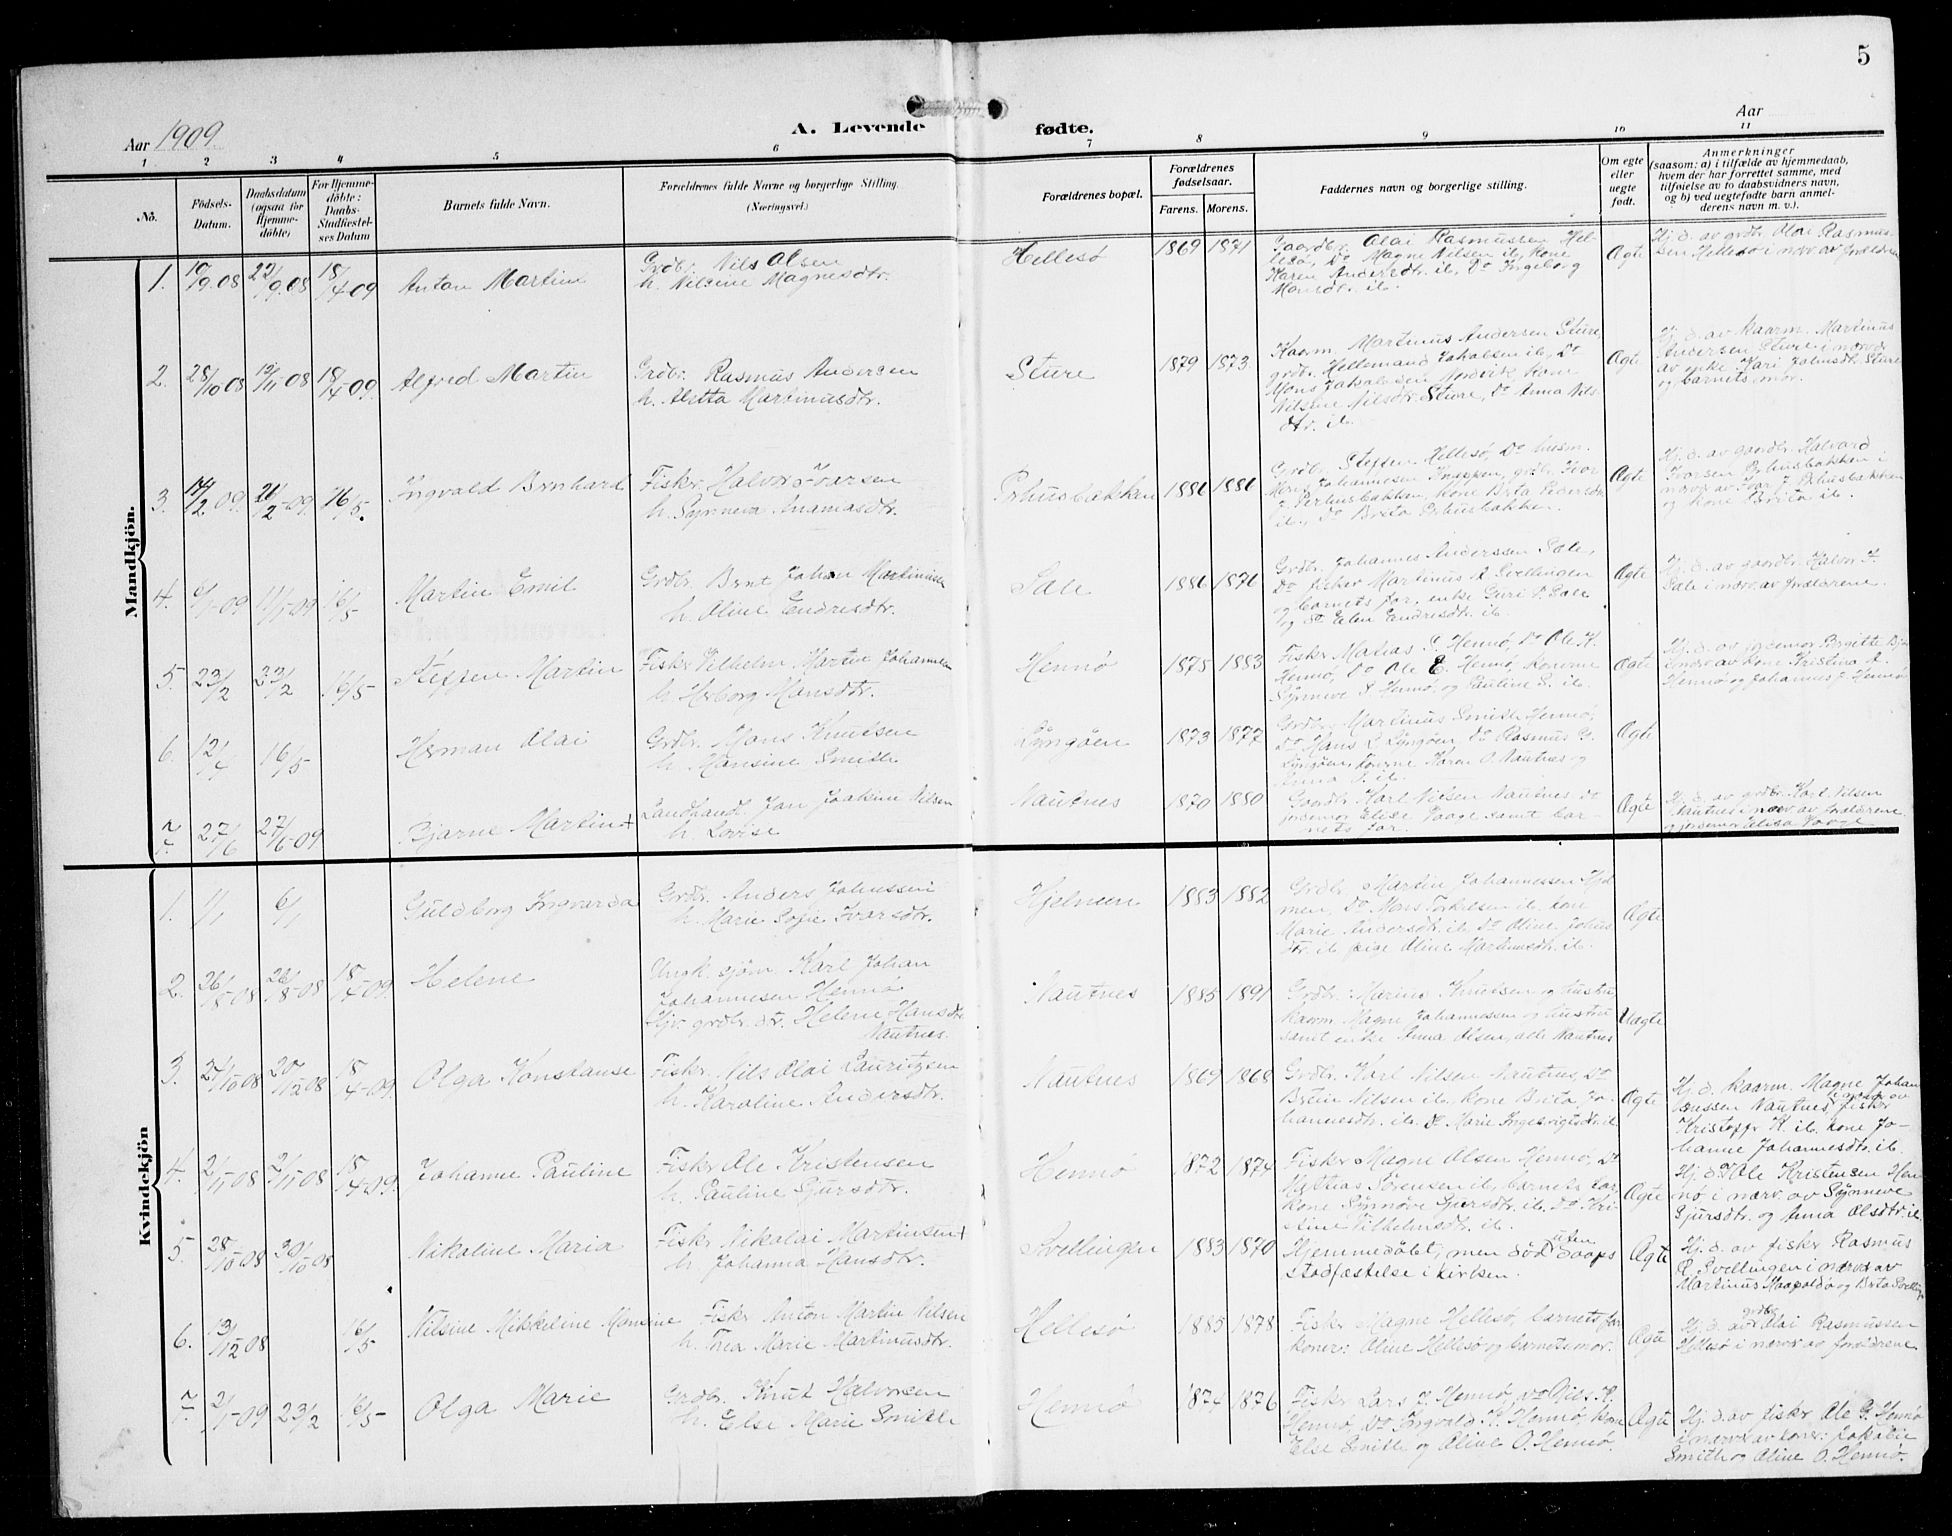 5
Aar 1909.
A. Levende fødte.
Aar
1 2 3 4 5 6 7 8 9 10 11
No.
Fødsels-
Datum.
Daabsdatum
(ogsaa for
Hjemme-
döbte)
For Hjemme-
döbte:
Daabs-
Stadfæstel-
ses Datum
Barnets fulde Navn.
Forældrenes fulde Navne og borgerlige Stilling.
(Næringsvei.)
Forældrenes bopæl.
Forældrenes
fødselsaar.
Farens. Morens.
Faddernes navn og borgerlige stilling.
Om egte
eller
uegte
født.
Anmerkninger
(saasom: a) i tilfælde av hjemmedaab,
hvem der har forrettet samme, med
tilføielse av to daabsvidners navn,
og b) ved uegtefødte barn anmel-
derens navn m. v.).
Mandkjön.
1. 10/9.08 22/9.08 18/4-09 Anton Martin
Grdbr. Nils Olsen
h. Nilsine Magnesdtr.
Hellesø 1869 1871
Gaardbr. Olai Rasmussen Hel-
lesø, Do Magne Nilsen ib, Kone
Karen Andersdtr. ib, Do Ingeborg
Monsdtr. ib.
Ægte
Hj. d. av grdbr. Olai Rasmus-
sen Hellesø i nærv. av forældrene
2. 28/10 08 13/11 08 18/4-09. Alfred Martin
Grdbr. Rasmus Andersen
h. Aletta Martinusdtr.
Sture 1879 1873
Kaarm. Martinus Andersen Sture,
grdbr. Hellemand Jakobsen ib, Do
Mons Jakobsen Nordvik, Kone
Nilsine Nilsdtr. Sture, Do Anna Nils-
dtr. ib.
Ægte
Hj. d. av Kaarm. Martinus
Andersen Sture i nærvær
av enke Kari Johnsdtr. Sture
og barnets mor.
3. 14/2 09 21/2-09 16/5. Ingvald Bernhard
Fisker Halvor Ivarsen
h. Synneva Ananiasdtr.
Perhusbakken 1886 1886
Grdbr. Steffen Hellesø, Do husm.
Mons Johannesen Kuppen, grdbr. Ivar
J. Perhusbakken, Kone Brita Pedersdtr.
ib., Do Brita Perhusbakken.
Ægte
Hj. d. av gaardbr. Halvard
Ivarsen Perhusbakken i
nærv. av Ivar J. Perhusbakken
og Kone Brita ib.
4. 6/1-09. 11/1-09 16/5 Martin Emil
Grdbr. Bernt Johan Martinusen
h. Oline Endresdtr.
Sæle 1886 1876
Grdbr. Johannes Anderssen Sæle,
Do fisker Martinus A Svellingen
og barnets far, enke Guri P. Sæle
og Do Elen Endresdtr. ib.
Ægte
Hj. d. av gaardbr. Halvor
Sæle i nærv. av forældrene.
5. 23/2 23/2 16/5 Steffen Martin
Fisker Vilhelm Martin Johannesen
h. Herborg Monsdtr.
Hennø 1875 1883
Fisker Matias S. Hennø, Do Ole K.
Hennø, Do Ole E. Hennø, Konerne
Synneve S Hennø, og Pauline S. ib.
Ægte
Hj. d. av jordemor Birgitte
i nærv av Kone Kristina A.
Hennø og Johannes J. Hennø
6. 12/4 16/5 Herman Olai
Grdbr. Mons Knutsen
h. Monsine Smith
Lyngøen 1873 1877
Grdbr. Martinus Smith Hennø,
Do Hans L. Lyngøen, Do Rasmus
Lyngøen, Konerne Karen O. Nautnes og
Anna ib.
Ægte
7. 27/6 27/6-09 Bjarne Martin +
Landhandl. Jan Joakim Nilsen
h. Lovise
Nautnes 1870 1880
Gaardbr. Karl Nilsen Nautnes
jordemor Elise Vaage samt bar-
nets far.
Ægte
Hj. d. av grdbr. Karl Nilsen
Nautnes i nærv av forældrene
og jordemor Elisa Vaage
Kvindekjön
1. 1/1 6/1 Guldborg Ingverda
Grdbr. Anders Johnssen
h. Marie Sofie Ivarsdtr.
Hjelmen 1883 1882
Grdbr. Martin Johannessen Hjel-
men, Do Mons Torkilsen ib, Kone
Marie Andersdtr. ib, Do Oline Johns
dtr. ib, pige Oline Martinusdtr. ib.
Ægte
2. 26/8-08 26/8-08 18/4-09. Helene
Ungk. sjøm. Karl Johan
Johannesen Hennø
Hjv. grdbr. dtr. Helene Hansdtr.
Nautnes.
Nautnes 1885 1891
Grdbr. Marius Knutsen og hustru
kaarm. Magne Johannessen og hustru
samt enke Anna Olsen, alle Nautnes
Uægte
3. 21/10 08 20/12 08 18/4-09. Olga Konstanse
Fisker Nils Olai Lauritzen
h. Karoline Andersdtr.
Nautnes 1869 1868
Grdbr. Karl Nilsen Nautnes, Do
Nilsen ib. Kone Brita Jo-
hannesdtr. ib. Do Marie Ingebrigtsdtr. ib
Ægte
Hj. d. kaarm. Magne Johan
nessen Nautnes i nærv av fisker
Kristoffer K. ib. kone Jo-
hanne Johannesdtr. ib.
4. 2/11 08 2/11 08 18/4-09. Johanne Pauline
Fisker Ole Kristensen
h. Pauline Sjursdtr.
Hennø 1872 1874
Fisker Magne Olsen Hennø, Do
Mathias Sørensen ib, barnets far,
Kone Synnøve Sjursdtr. ib, Do Kri-
stine Vilhelmsdtr. ib.
Ægte
Hj. d. Ole Kristensen Hen
nø i nærv. av Synneve
Sjursdtr. og Anna Olsdtr. ib
5. 28/10 08 30/10 08 Nikoline Maria
Fisker Nikolai Martinsen +
h. Johanna Hansdtr.
Svellingen 1883 1870
Hjemmedøbt, men død uten daaps
stadfæstelse i kirken.
Ægte
Hj. d. av fisker Rasmus
R. Svellingen i nærv av
Martinus og Brita Svelling
6. 13/12 08 16/5 Nilsine Mikkeline Monsine
Fisker Anton Martin Nilsen
h. Thea Marie Martinusdtr.
Hellesø 1885 1878
Fisker Magne Hellesø, barnets far
koner: Oline Hellesø og barnets mor.
Ægte
Hj. d. av grdbr. Olai Rasmussen
Hellesø i nærv av forældrene
7. 2/1-09 23/2 16/5 Olga Marie
Grdbr. Knut Halvorsen
h. Else Marie Smith
Hennø 1874 1876
Fisker Lars J. Hennø, Do Nils H.
Hennø, Do Ingvald K. Hennø, Kone
Else Smith og Oline O. Hennø.
Ægte
Hj. d. av fisker Ole G. Hennø
i nærv av koner: Jakobie
Smith og Oline O. Hennø.